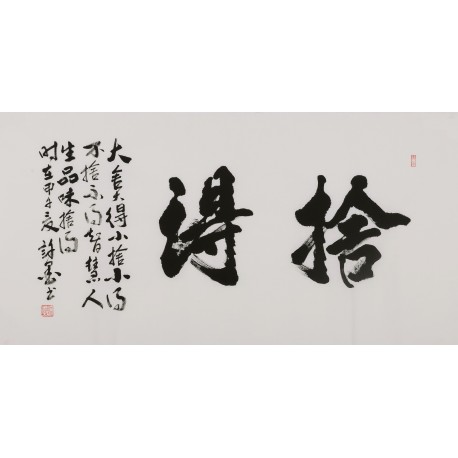 捨得
大舍大得小捨小得
不捨不得智慧人
生品味捨得
时在甲午夏书